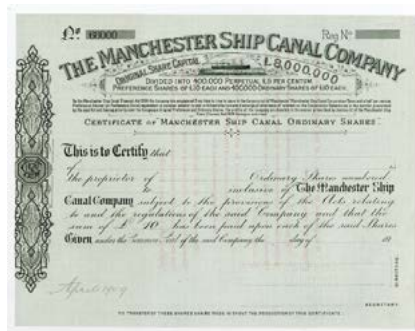 No. 60000 Reg. No.
THE MANCHESTER SHIP CANAL COMPANY
ORIGINAL SHARE CAPITAL £8,000,000
DIVIDED INTO 400,000 PERPETUAL £5 PER CENTUM
PREFERENCE SHARES OF £10 EACH AND 400,000 ORDINARY SHARES OF £10 EACH.
CERTIFICATE OF MANCHESTER SHIP CANAL ORDINARY SHARES.
This is to Certify that
the proprietor of Ordinary Shares numbered
to inclusive of The Manchester Ship
Canal Company subject to the provisions of the Acts relating
to and the regulations of the said Company and that the
sum of £10 has been paid upon each of the said Shares
Given under the Common Seal of the said Company the day of 19
April 1909
SECRETARY.
NO TRANSFER OF THESE SHARES CAN BE MADE WITHOUT THE PRODUCTION OF THIS CERTIFICATE.